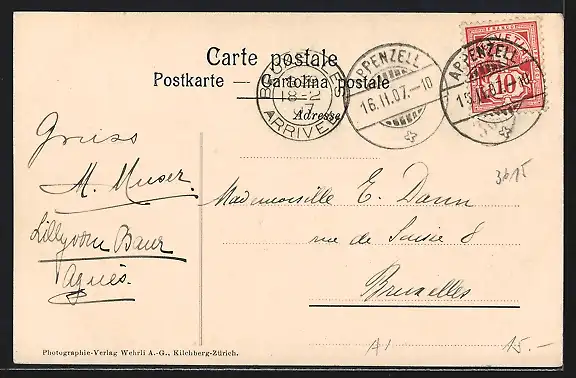 Carte postale
Postkarte — Cartolina postale
Adresse
BRUXELLES
ARRIVEE
APPENZELL
16.II.07.–10
APPENZELL
10
Gruss
M. Muser.
Lilly vom Baur
Agnès.
3615
Mademoiselle E. Dann
rue de Suisse 8
Bruxelles
A1
15.-
Photographie-Verlag Wehrli A.-G., Kilchberg-Zürich.